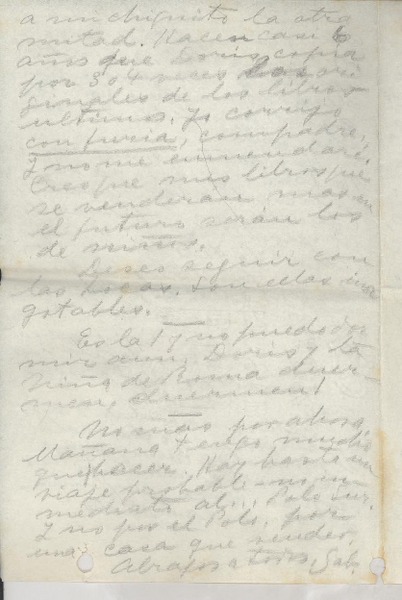 a un chiquito la otra
mitad. Hacen casi 6
años que Doris copia
por 3 o 4 veces los ori
ginales de los libros
últimos. Yo corrijo
con furia, compadre,
y no me enmendaré.
Creo que mis libros que
se venderán más en
el futuro serán los
de niños.
Deseo seguir con
las Locas. Son ellas inago
gotables.
Es la 1 y no puedo dor
mir aun. Doris y la
Niña de Roma duer-
men, duermen!
No más por ahora.
Mañana tengo mucho
que hacer. Hay hasta un
viaje probable – no in
mediato al... Polo Sur.
Y no por el Polo, por
una casa que vender.
Abrazos a todos, Gab.